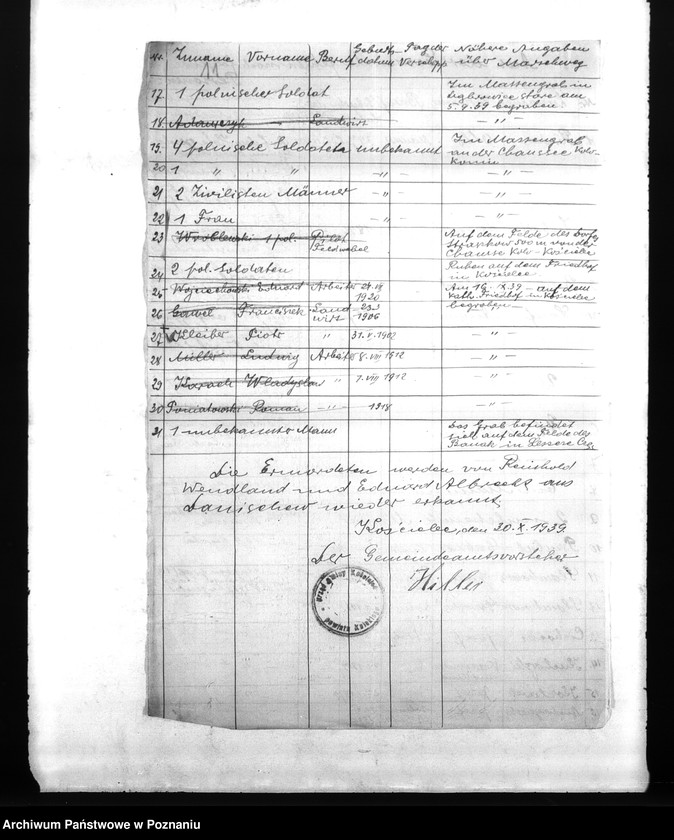 Nr. Zuname Vorname Beruf Geburts- datum Tag der Verschlepp. Nähere Angaben über Marschweg
11
17 1 polnischer Soldat Im Massengrab in am 5.9.39 begraben
18. Adamczyk - Landwirt - " -
19. 4 polnische Soldaten unbekannt Im Massengrab an der Chaussee Kolo-Konin
20 1 " " - " - - " -
21 2 Zivilisten Männer - " - - " -
22 1 Frau - " - - " -
23 Wróblewski 1 pol. Feldwebel Auf dem Felde des Dorfes 500 m von der Chaussee Kolo-Kościelec
24 2 pol. Soldaten Ruhen auf dem Friedhof in Kościelec.
25 Wojciechowski Eduard Arbeiter 1920 Am 16.IX.39 - auf dem kath. Friedhof in Kościelec begraben -
26 Gaweł Franciszek Landwirt 1906
27 Kleiber Piotr " 31.V.1902 - " -
28 Miller Ludwig Arbeiter 8.VIII 1912 - " -
29 Władysław " 7.VIII 1912 - " -
30 Poniatowski Roman - " - 1918 - " -
31 1 unbekannter Mann Das Grab befindet sich auf dem Felde des in
Die Ermordeten werden von Reinhold
Wendland und Eduard Albrecht aus
wieder erkannt.
Kościelec, den 30.X.1939
Der Gemeindeamtsvorsteher
Urząd Gminy Kościelec
powiatu Kolskiego
Archiwum Państwowe w Poznaniu